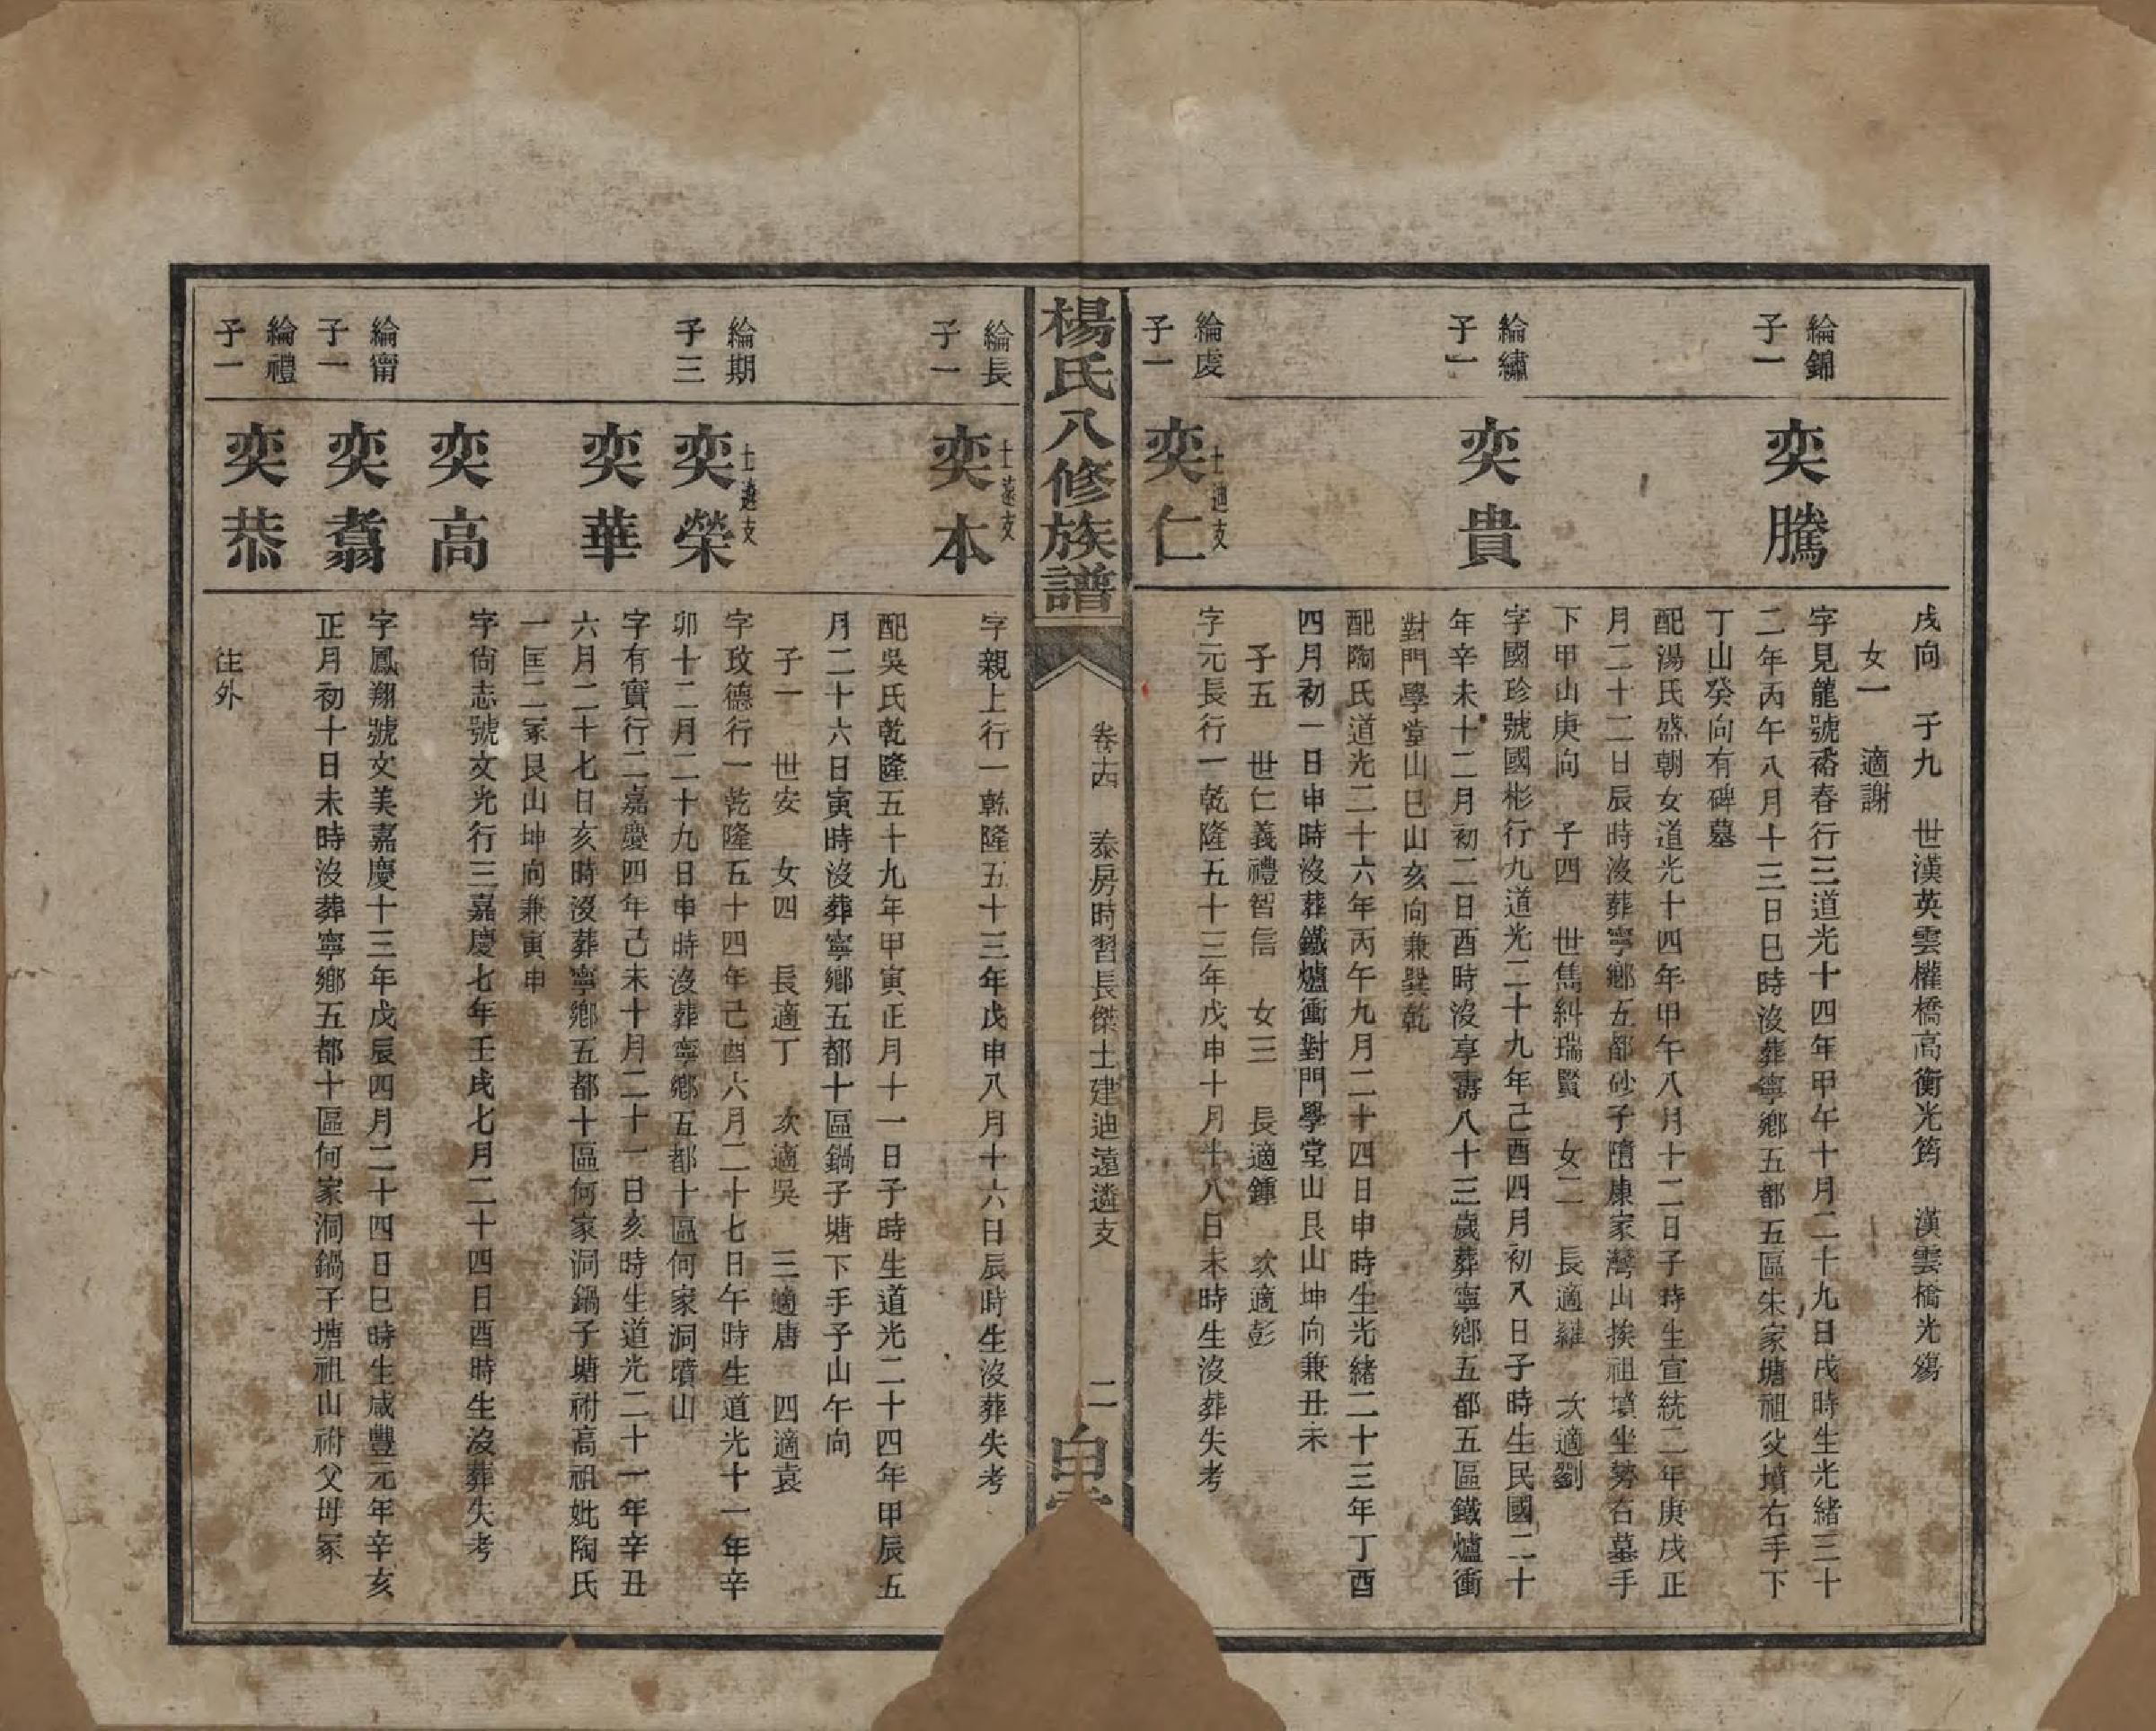 戌向　子九　世漢英雲權橋高衡光筠　漢雲橋光殤
女一　適謝
綸錦
子一
奕騰
字見龍號裕春行三道光十四年甲午十月二十九日戌時生光緒三十
二年丙午八月十三日巳時沒葬寧鄉五都五區朱家塘祖父墳右手下
丁山癸向有碑墓
配湯氏盛朝女道光十四年甲午八月十二日子時生宣統二年庚戌正
月二十二日辰時沒葬寧鄉五都砂子隋康家灣山挨祖墳坐勢右墓手
下甲山庚向　子四　世雋糾瑞賢　女二　長適羅　次適劉
綸繡
子一
奕貴
字國珍號國彬行九道光二十九年己酉四月初八日子時生民國二十
年辛未十二月初二日酉時沒享壽八十三歲葬寧鄉五都五區鐵爐衝
對門學堂山巳山亥向兼巽乾
配陶氏道光二十六年丙午九月二十四日申時生光緒二十三年丁酉
四月初一日申時沒葬鐵爐衝對門學堂山艮山坤向兼丑未
子五　世仁義禮智信　女三　長適鍾　次適彭
綸虔
子一
士迪支
奕仁
字元長行一乾隆五十三年戊申十月十八日未時生沒葬失考
楊氏八修族譜
卷十四　泰房時習長傑士建迪遠遴支
二
白
綸長
子一
士遠支
奕本
字親上行一乾隆五十三年戊申八月十六日辰時生沒葬失考
配吳氏乾隆五十九年甲寅正月十一日子時生道光二十四年甲辰五
月二十六日寅時沒葬寧鄉五都十區鍋子塘下手子山午向
子一　世安　女四　長適丁　次適吳　三適唐　四適袁
綸期
子三
士遴支
奕榮
字玫德行一乾隆五十四年己酉六月二十七日午時生道光十一年辛
卯十二月二十九日申時沒葬寧鄉五都十區何家洞墳山
奕華
字有實行二嘉慶四年己未十月二十一日亥時生道光二十一年辛丑
六月二十七日亥時沒葬寧鄉五都十區何家洞鍋子塘祔高祖妣陶氏
一匡二冢艮山坤向兼寅申
奕高
字尙志號文光行三嘉慶七年壬戌七月二十四日酉時生沒葬失考
綸甯
子一
奕翥
字鳳翔號文美嘉慶十三年戊辰四月二十四日巳時生咸豐元年辛亥
正月初十日未時沒葬寧鄉五都十區何家洞鍋子塘祖山祔父母冢
綸禮
子一
奕恭
往外